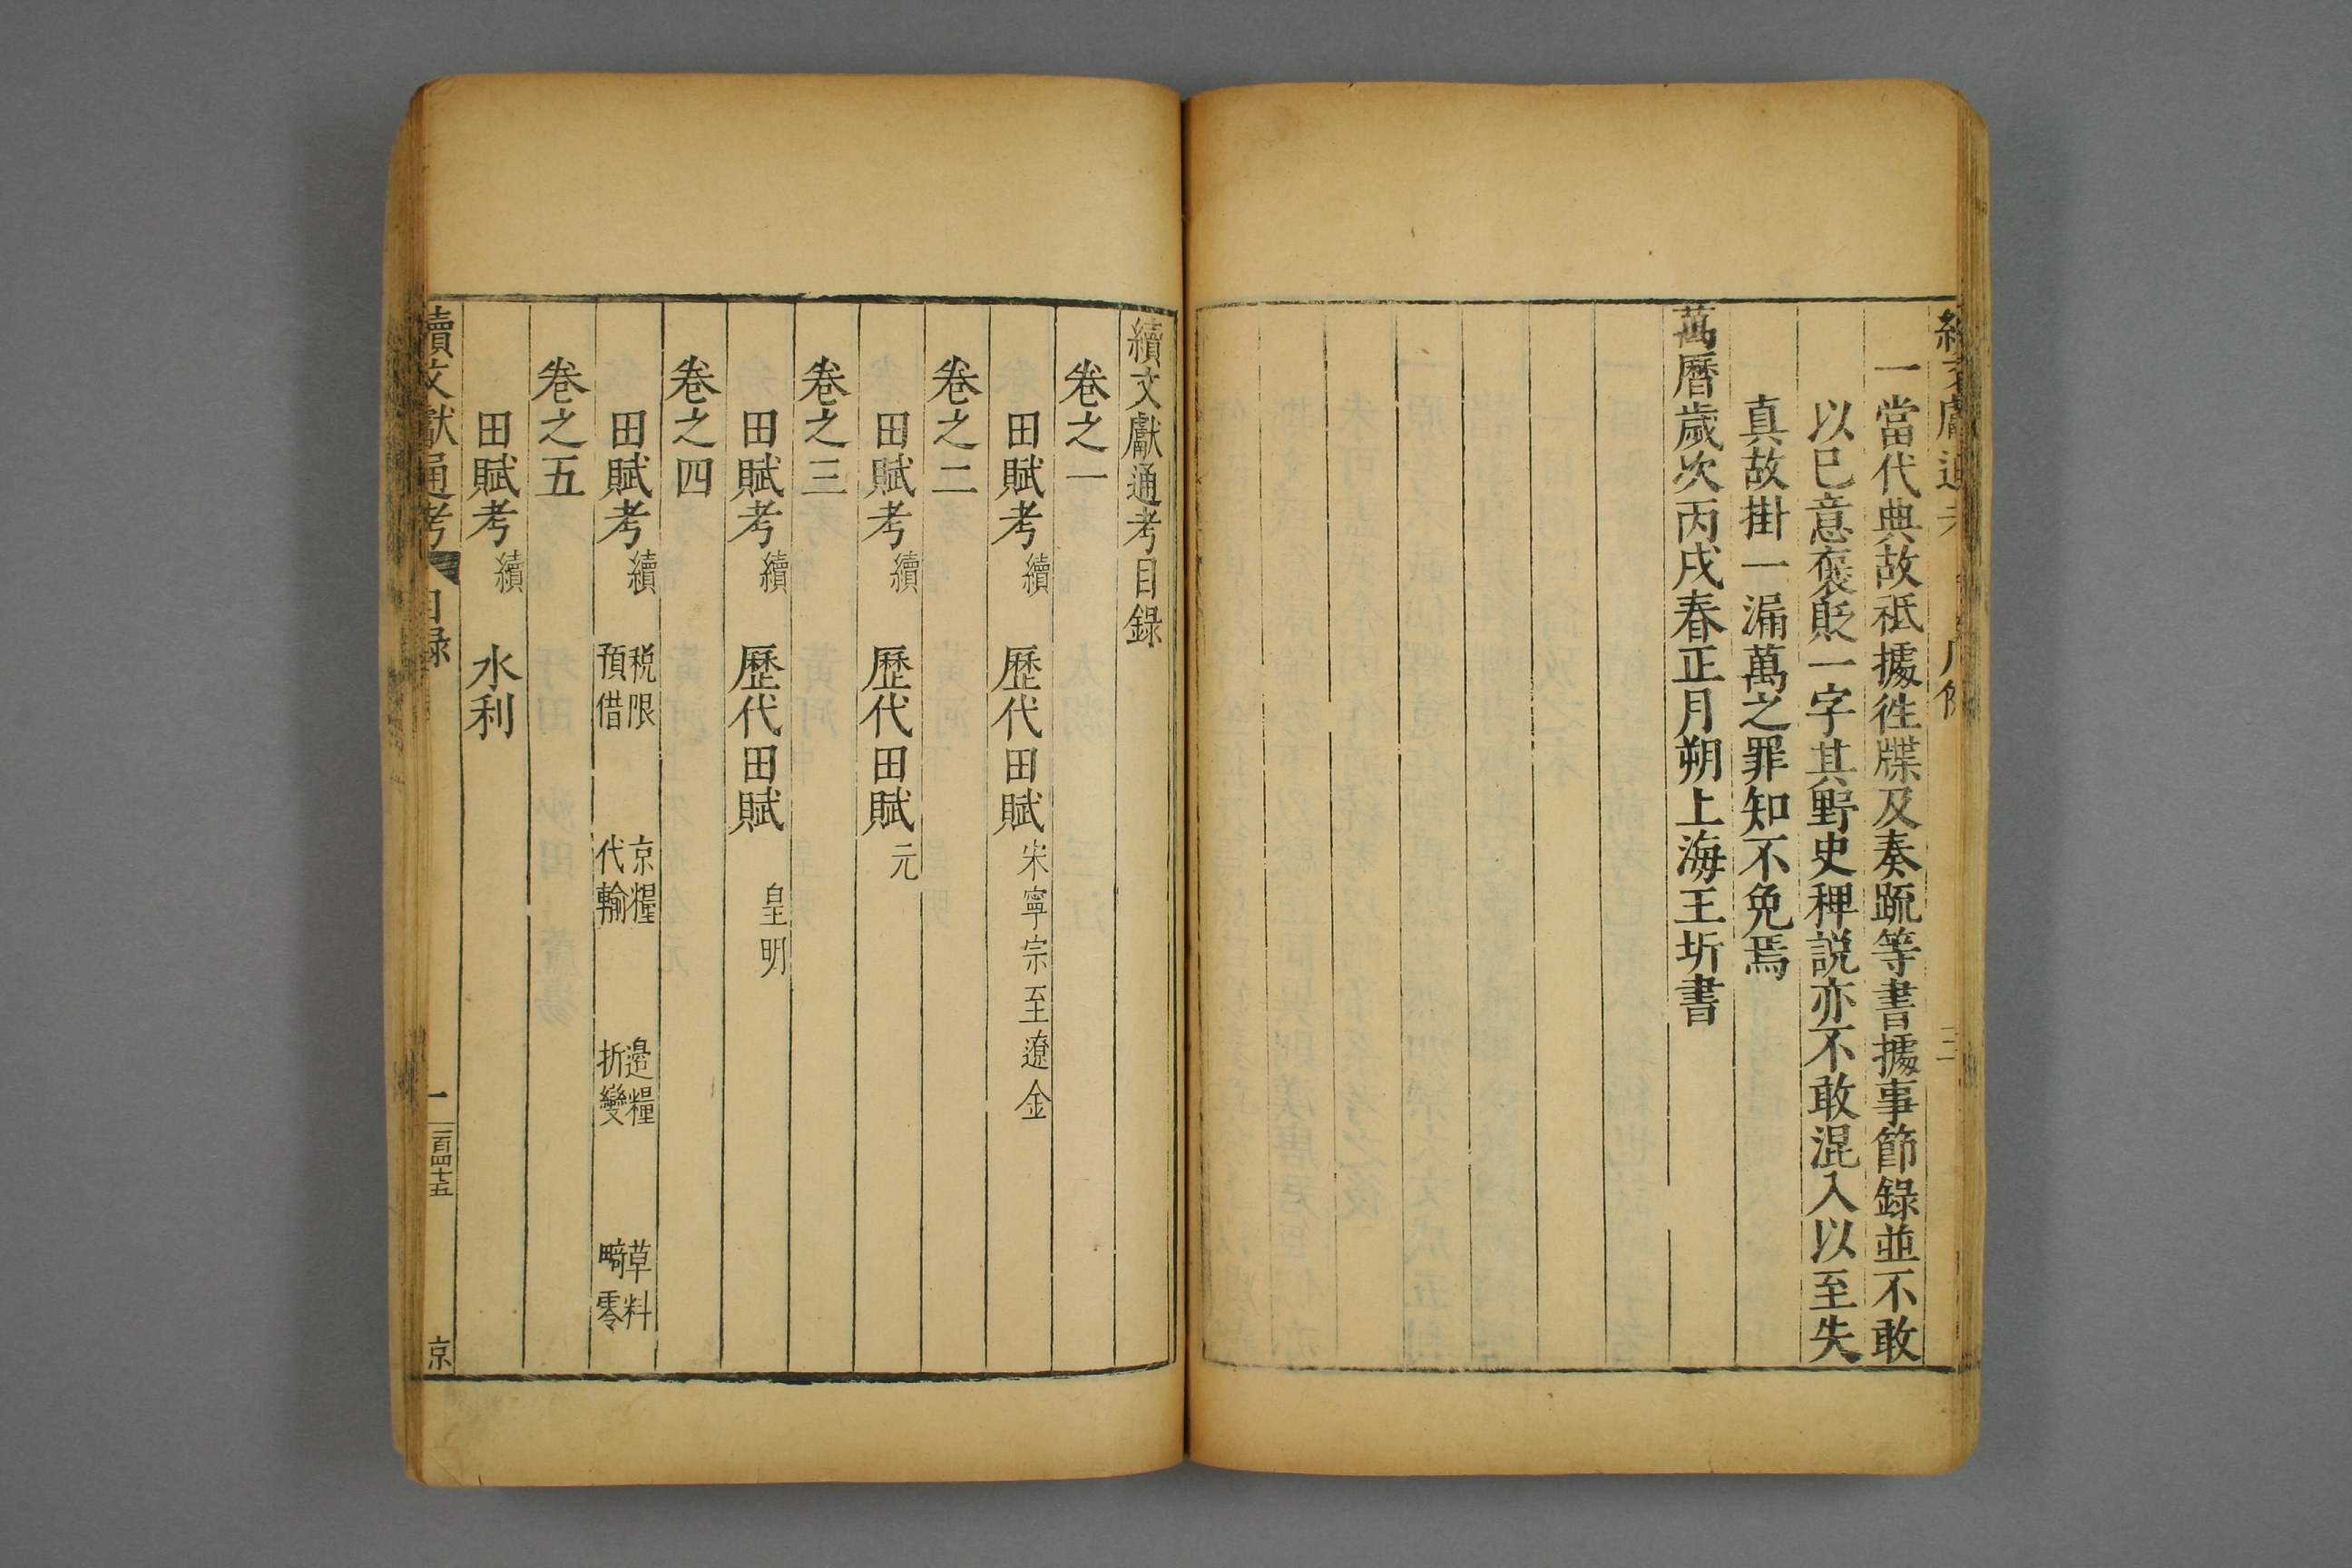 一當代典故秪據徃牒及奏䟽等書據事節錄並不敢
以已意褒貶一字其野史稗説亦不敢混入以至失
真故掛一漏萬之罪知不免焉
萬曆歲次丙戌春正月朔上海王圻書
續文獻通考目錄
卷之一
田賦考續 歷代田賦 宋寧宗至遼金
卷之二
田賦考續 歷代田賦 元
卷之三
田賦考續 歷代田賦 皇明
卷之四
田賦考續 稅限 預借 京糧 代輸 邉糧 折變 草料 畸零
卷之五
田賦考續 水利
續文獻通考 目錄 一 一百四十五 京